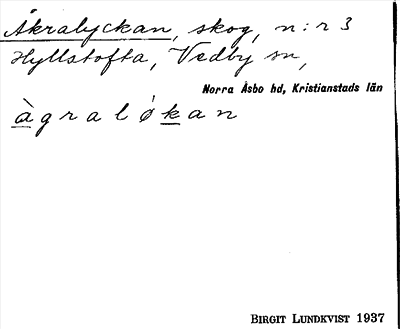 Åkralyckan, skog, n:r 3
Hyllstofta, Vedby sn,
Norra Åsbo hd, Kristianstads län
àgralǿkan
BIRGIT LUNDKVIST 1937